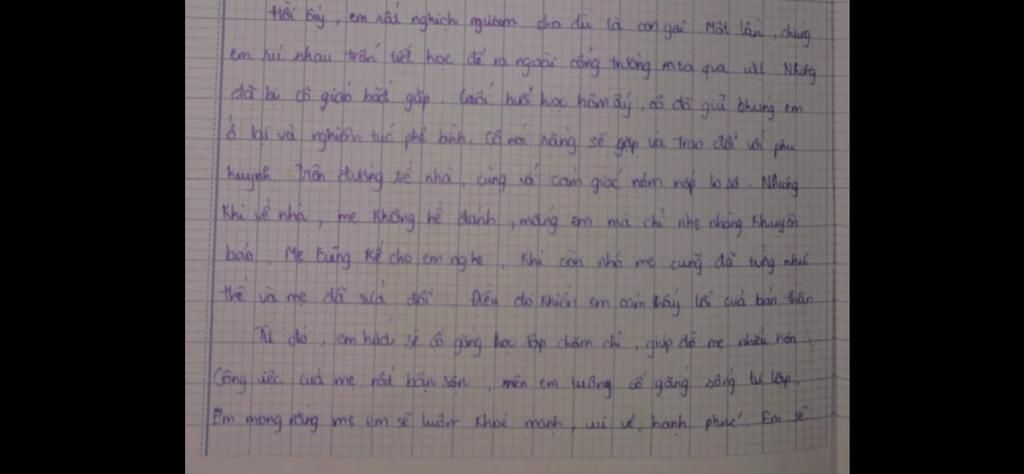 Hồi ấy, em rất nghịch ngượm cho dù là con gái. Một lần, chúng
em rủ nhau trốn tiết học để ra ngoài cổng trường mua quà vặt. Nhưng
đã bị cô giáo bắt gặp. Cuối buổi học hôm ấy, cô đã giữ chúng em
ở lại và nghiêm túc phê bình. Cô nói rằng sẽ gặp và trao đổi với phụ
huynh. Trên đường về nhà, cùng với cảm giác nơm nớp lo sợ. Nhưng
khi về nhà, mẹ không hề đánh, mắng em mà chỉ nhẹ nhàng khuyên
bảo. Mẹ cũng kể cho em nghe, khi còn nhỏ mẹ cũng đã từng như
thế và mẹ đã sửa đổi. Điều đó khiến em cảm thấy lỗi của bản thân
Từ đó, em hứa sẽ cố gắng học tập chăm chỉ, giúp đỡ mẹ nhiều hơn.
Công việc của mẹ rất bận rộn, nên em luôn cố gắng sống tự lập.
Em mong rằng mẹ em sẽ luôn khoẻ mạnh, vui vẻ, hạnh phúc. Em sẽ